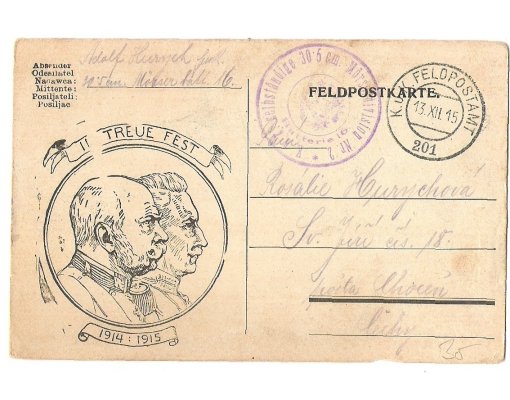 Absender
Odesílatel
Nadawca:
Mittente:
Pošiljatelj:
Posiljac
Adolf Hurych
30·5 cm. Mörser Batt. 16.
II TREUE FEST
1914 : 1915
30·5 cm Mörserdivision Nr 2
FELDPOSTKARTE.
K.u.K. FELDPOSTAMT
13.XII.15
201
Rosálie Hurychová
Sv. Jiří čís. 18.
pošta Choceň
Čechy
35